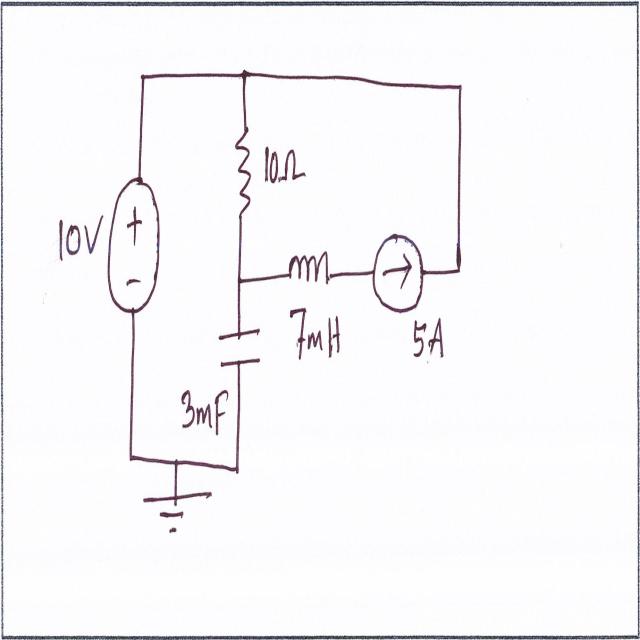 10Ω
10V
+
-
7mH
5A
3mF